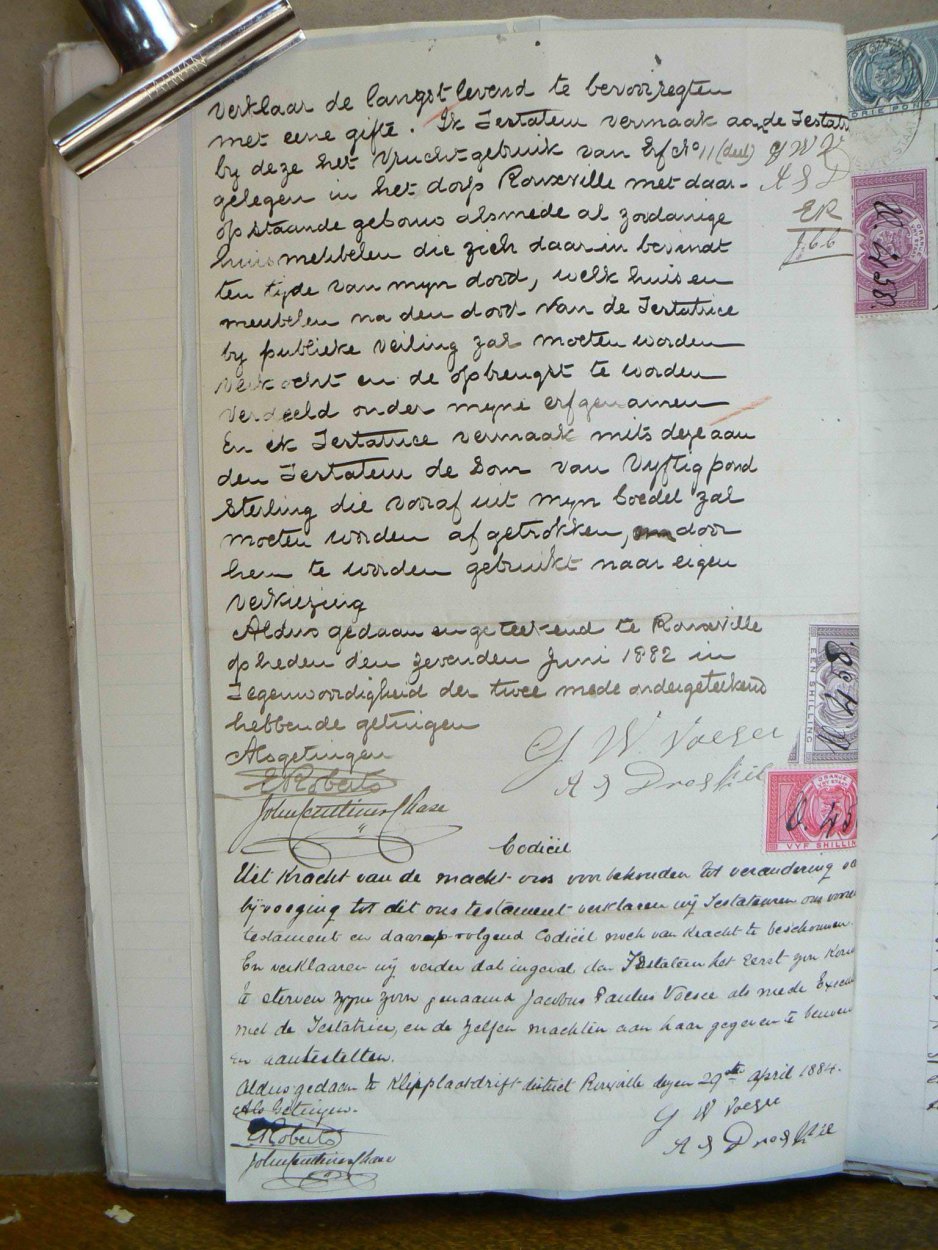 verklaar de langst levend te bevoorregten
met eene gifte. Ik Testateur vermaak aan de Testat
by deze het Vruchtgebruik van Erf No 11 (deel) G W V
gelegen in het dorp Rouxville met daar- A S D
opstaande gebouw alsmede al zoodanige ER
huismeubelen die zich daarin bevindt J.C.C
ten tyde van myn dood, welk huis en
meubelen na den dood van de Testatrice
by publieke veiling zal moeten worden
verkocht en de opbrengst te worden
verdeeld onder myne erfgenamen
En ik Testatrice vermaak mits deze aan
den Testateur de Som van Vyftig pond
Sterling die vooraf uit myn boedel zal
moeten worden afgetrokken, door
hem te worden gebruikt naar eigen
verkiezing
Aldus gedaan en geteekend te Rouxville
op heden den zevenden Juni 1882 in
Tegenwoordigheid der twee mede ondergeteekend
hebbende getuigen
Als getuigen
G. W. Voesee
E Roberts
A S Droskie
John Centlivres Chase
Codiciel
Uit Kracht van de macht ons voorbehouden tot verandering
byvoeging tot dit ons testament verklaren wy Testateuren ons
testament en daarop volgend Codiciel noch van Kracht te beschouwen.
En verklaaren wy verder dat ingeval den Testateur het Eerst
te sterven zyne zoon genaamd Jacobus Paulus Voesee als mede
met de Testatrice, en de zelfen machten aan haar gegeven te
en aantestellen.
Aldus gedaan te Klipplaatdrift district Rouxville dezen 29ste April 1884.
Als Getuigen.
G W Voesee
E Roberts
A S Droskie
John Centlivres Chase
DRIE POND
ORANJE
EEN SHILLING
ORANJE
VYF SHILLIN
TAIWAN